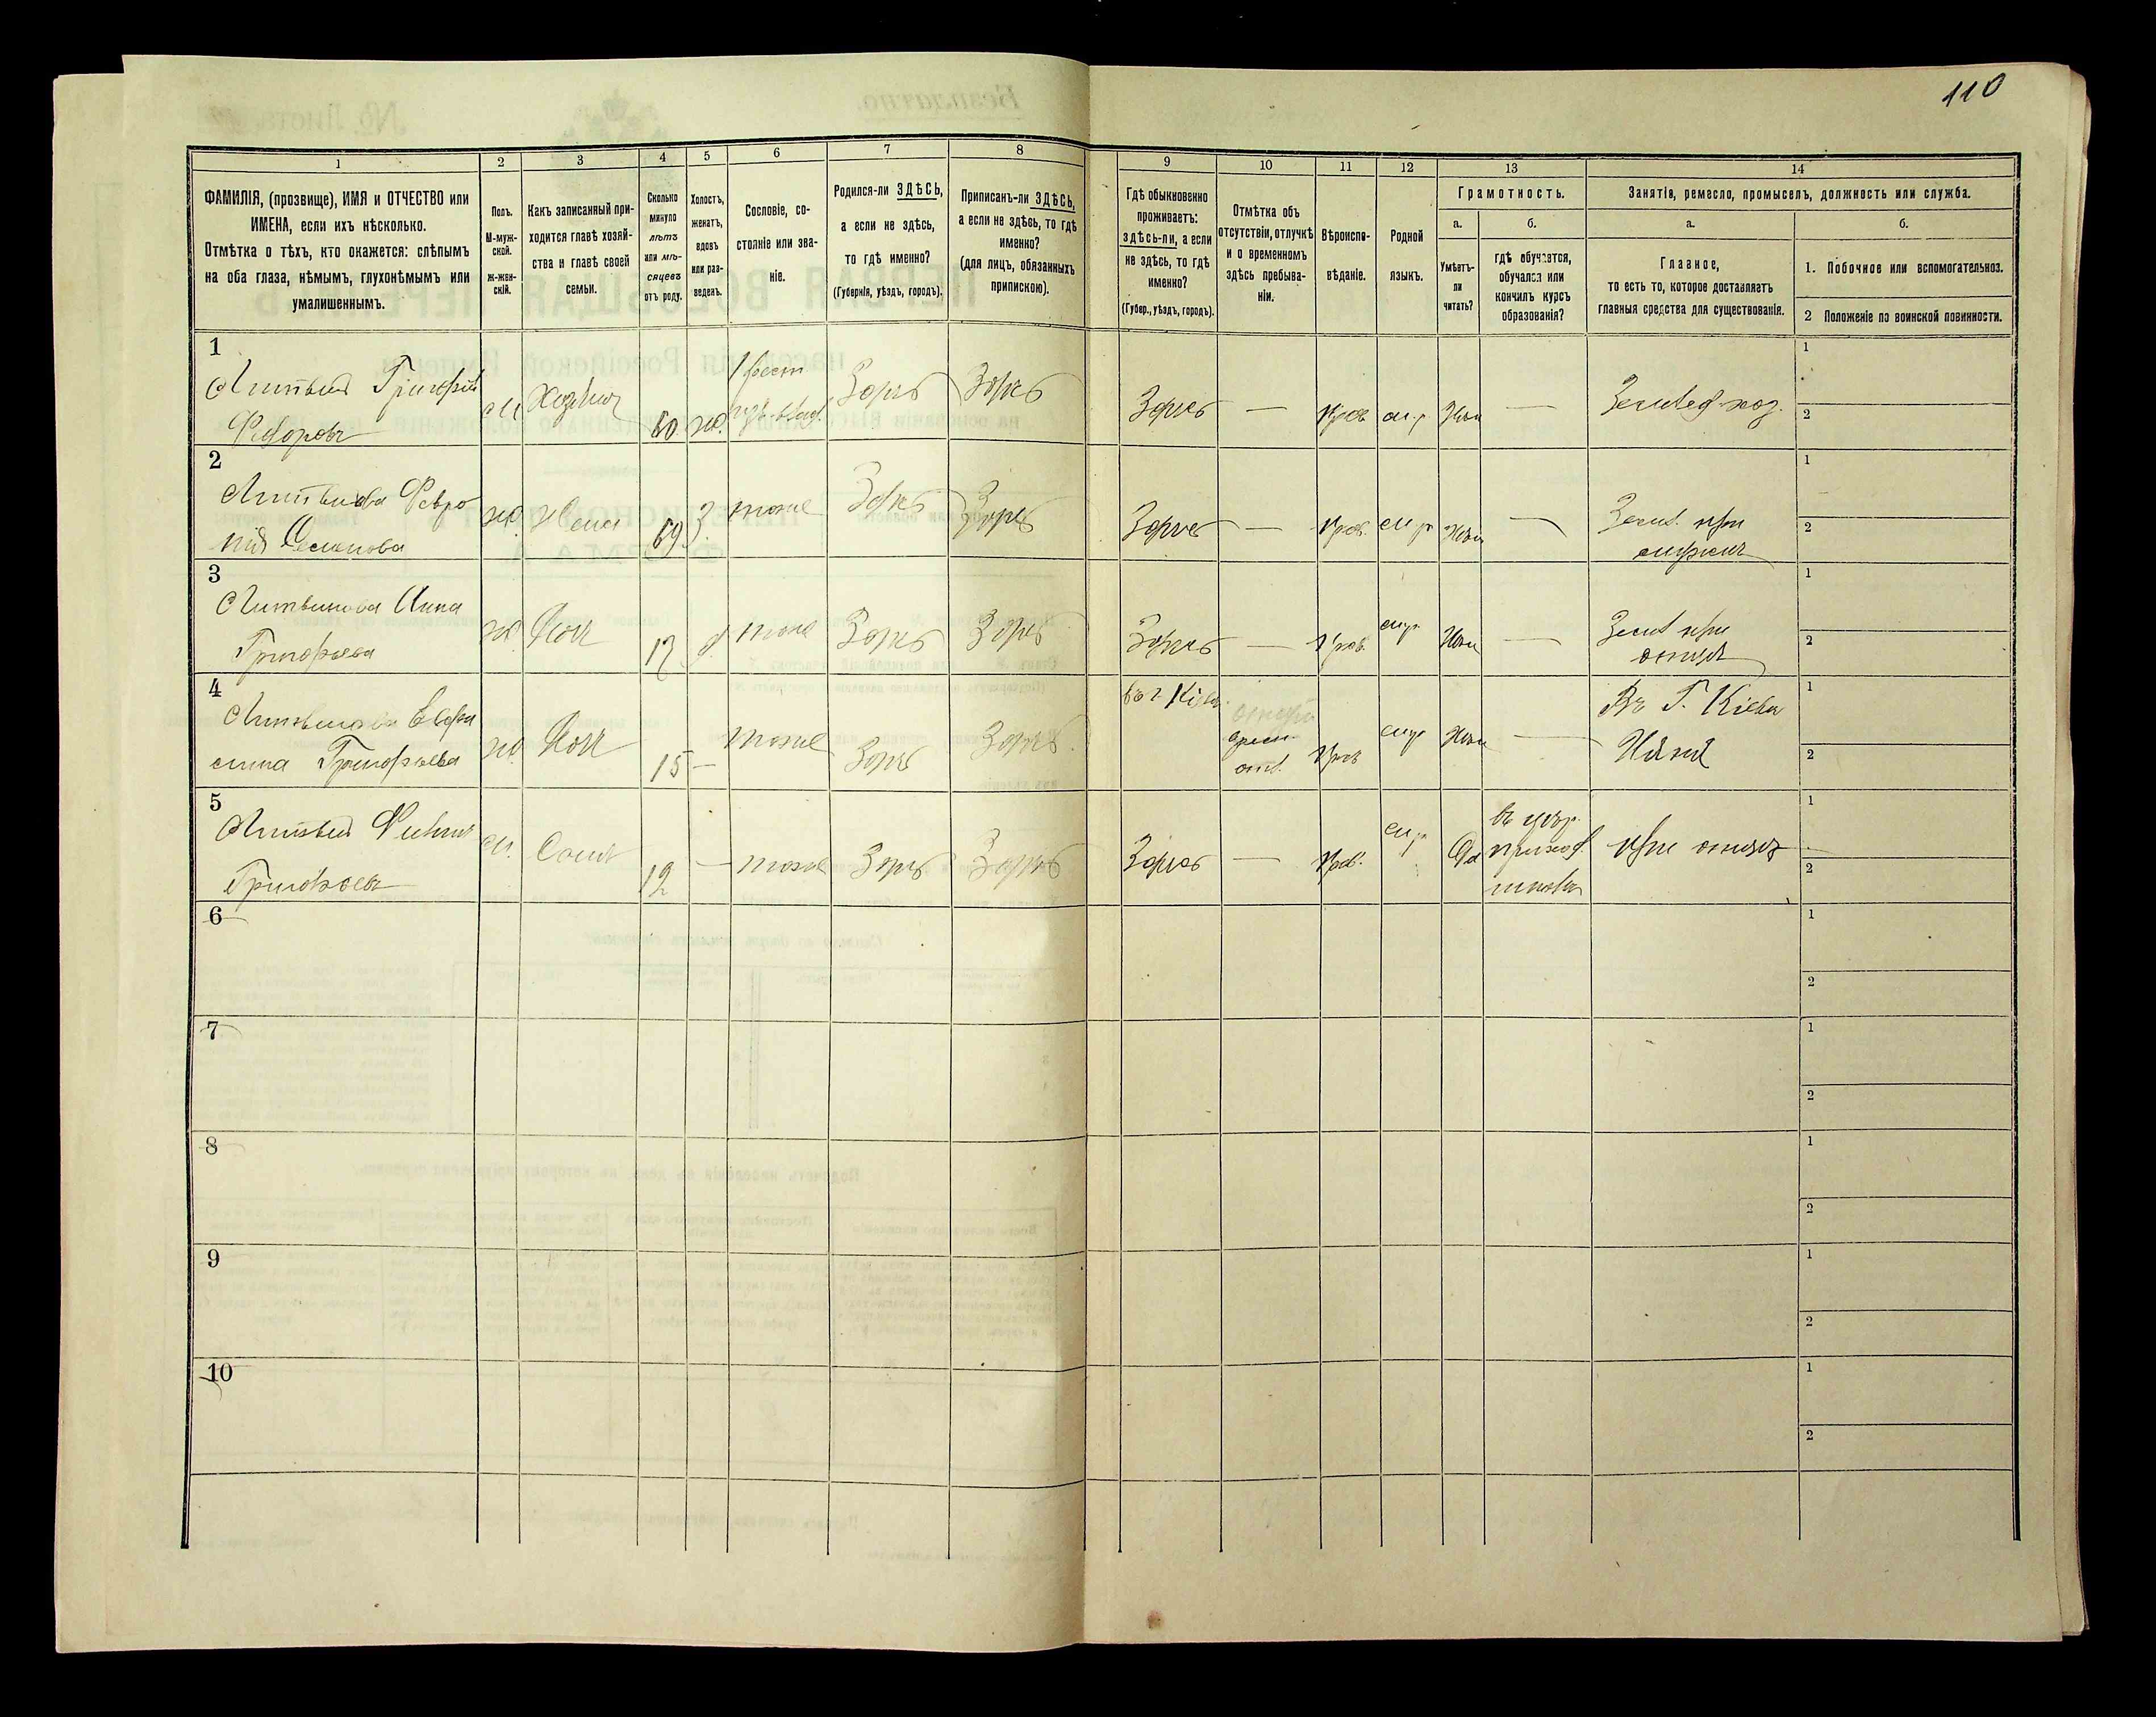 110
1
2
3
4
5
6
7
8
9
10
11
12
13
14
ФАМИЛІЯ, (прозвище), ИМЯ и ОТЧЕСТВО или
ИМЕНА, если ихъ нѣсколько.
Отмѣтка о тѣхъ, кто окажется: слѣпымъ
на оба глаза, нѣмымъ, глухонѣмымъ или
умалишеннымъ.
Полъ.
М-муж-
ской.
Ж-жен-
скій.
Какъ записанный при-
ходится главѣ хозяй-
ства и главѣ своей
семьи.
Сколько
минуло
лѣтъ
или мѣ-
сяцевъ
отъ роду.
Холостъ,
женатъ,
вдовъ
или раз-
веденъ.
Сословіе, со-
стояніе или зва-
ніе.
Родился-ли ЗДѢСЬ,
а если не здѣсь,
то гдѣ именно?
(Губернія, уѣздъ, городъ).
Приписанъ-ли ЗДѢСЬ,
а если не здѣсь, то гдѣ
именно?
(для лицъ, обязанныхъ
припискою).
Гдѣ обыкновенно
проживаетъ:
здѣсь-ли, а если
не здѣсь, то гдѣ
именно?
(Губер., уѣздъ, городъ).
Отмѣтка объ
отсутствіи, отлучкѣ
и о временномъ
здѣсь пребыва-
ніи.
Вѣроиспо-
вѣданіе.
Родной
языкъ.
Грамотность.
а.
Умѣетъ-
ли
читать?
б.
гдѣ обучается,
обучался или
кончилъ курсъ
образованія?
Занятія, ремесло, промыселъ, должность или служба.
а.
Главное,
то есть то, которое доставляетъ
главныя средства для существованія.
б.
1. Побочное или вспомогательное.
2 Положеніе по воинской повинности.
1
Литвин Григорій
Федоровъ
М
Хозяин
60
ж.
Здѣсь
Здѣсь
Здѣсь
—
Прав
м р
—
1
2
2
Литвинова Февро
нія Семенова
ж
Жена
59
З.
тоже
Здѣсь
Здѣсь
Здѣсь
—
Прав.
м р
—
при
1
2
3
Литвинова Анна
Григорьева
ж
Дочь
17
тоже
Здѣсь
Здѣсь
Здѣсь
—
Прав
м р
—
при
отцѣ
1
2
4
Литвинова Евфро
сина Григорьева
ж
Дочь
15
—
тоже
Здѣсь
Здѣсь
въ г. Кіевѣ
Прав
м р
—
Въ Г. Кіевѣ
Няня
1
2
5
Литвин
Григорьевъ
м.
Сынъ
12
—
тоже
Здѣсь
Здѣсь
Здѣсь
—
Прав.
м р
Да
въ церк.
приход
школѣ
при отцѣ
1
2
6
1
2
7
1
2
8
1
2
9
1
2
10
1
2